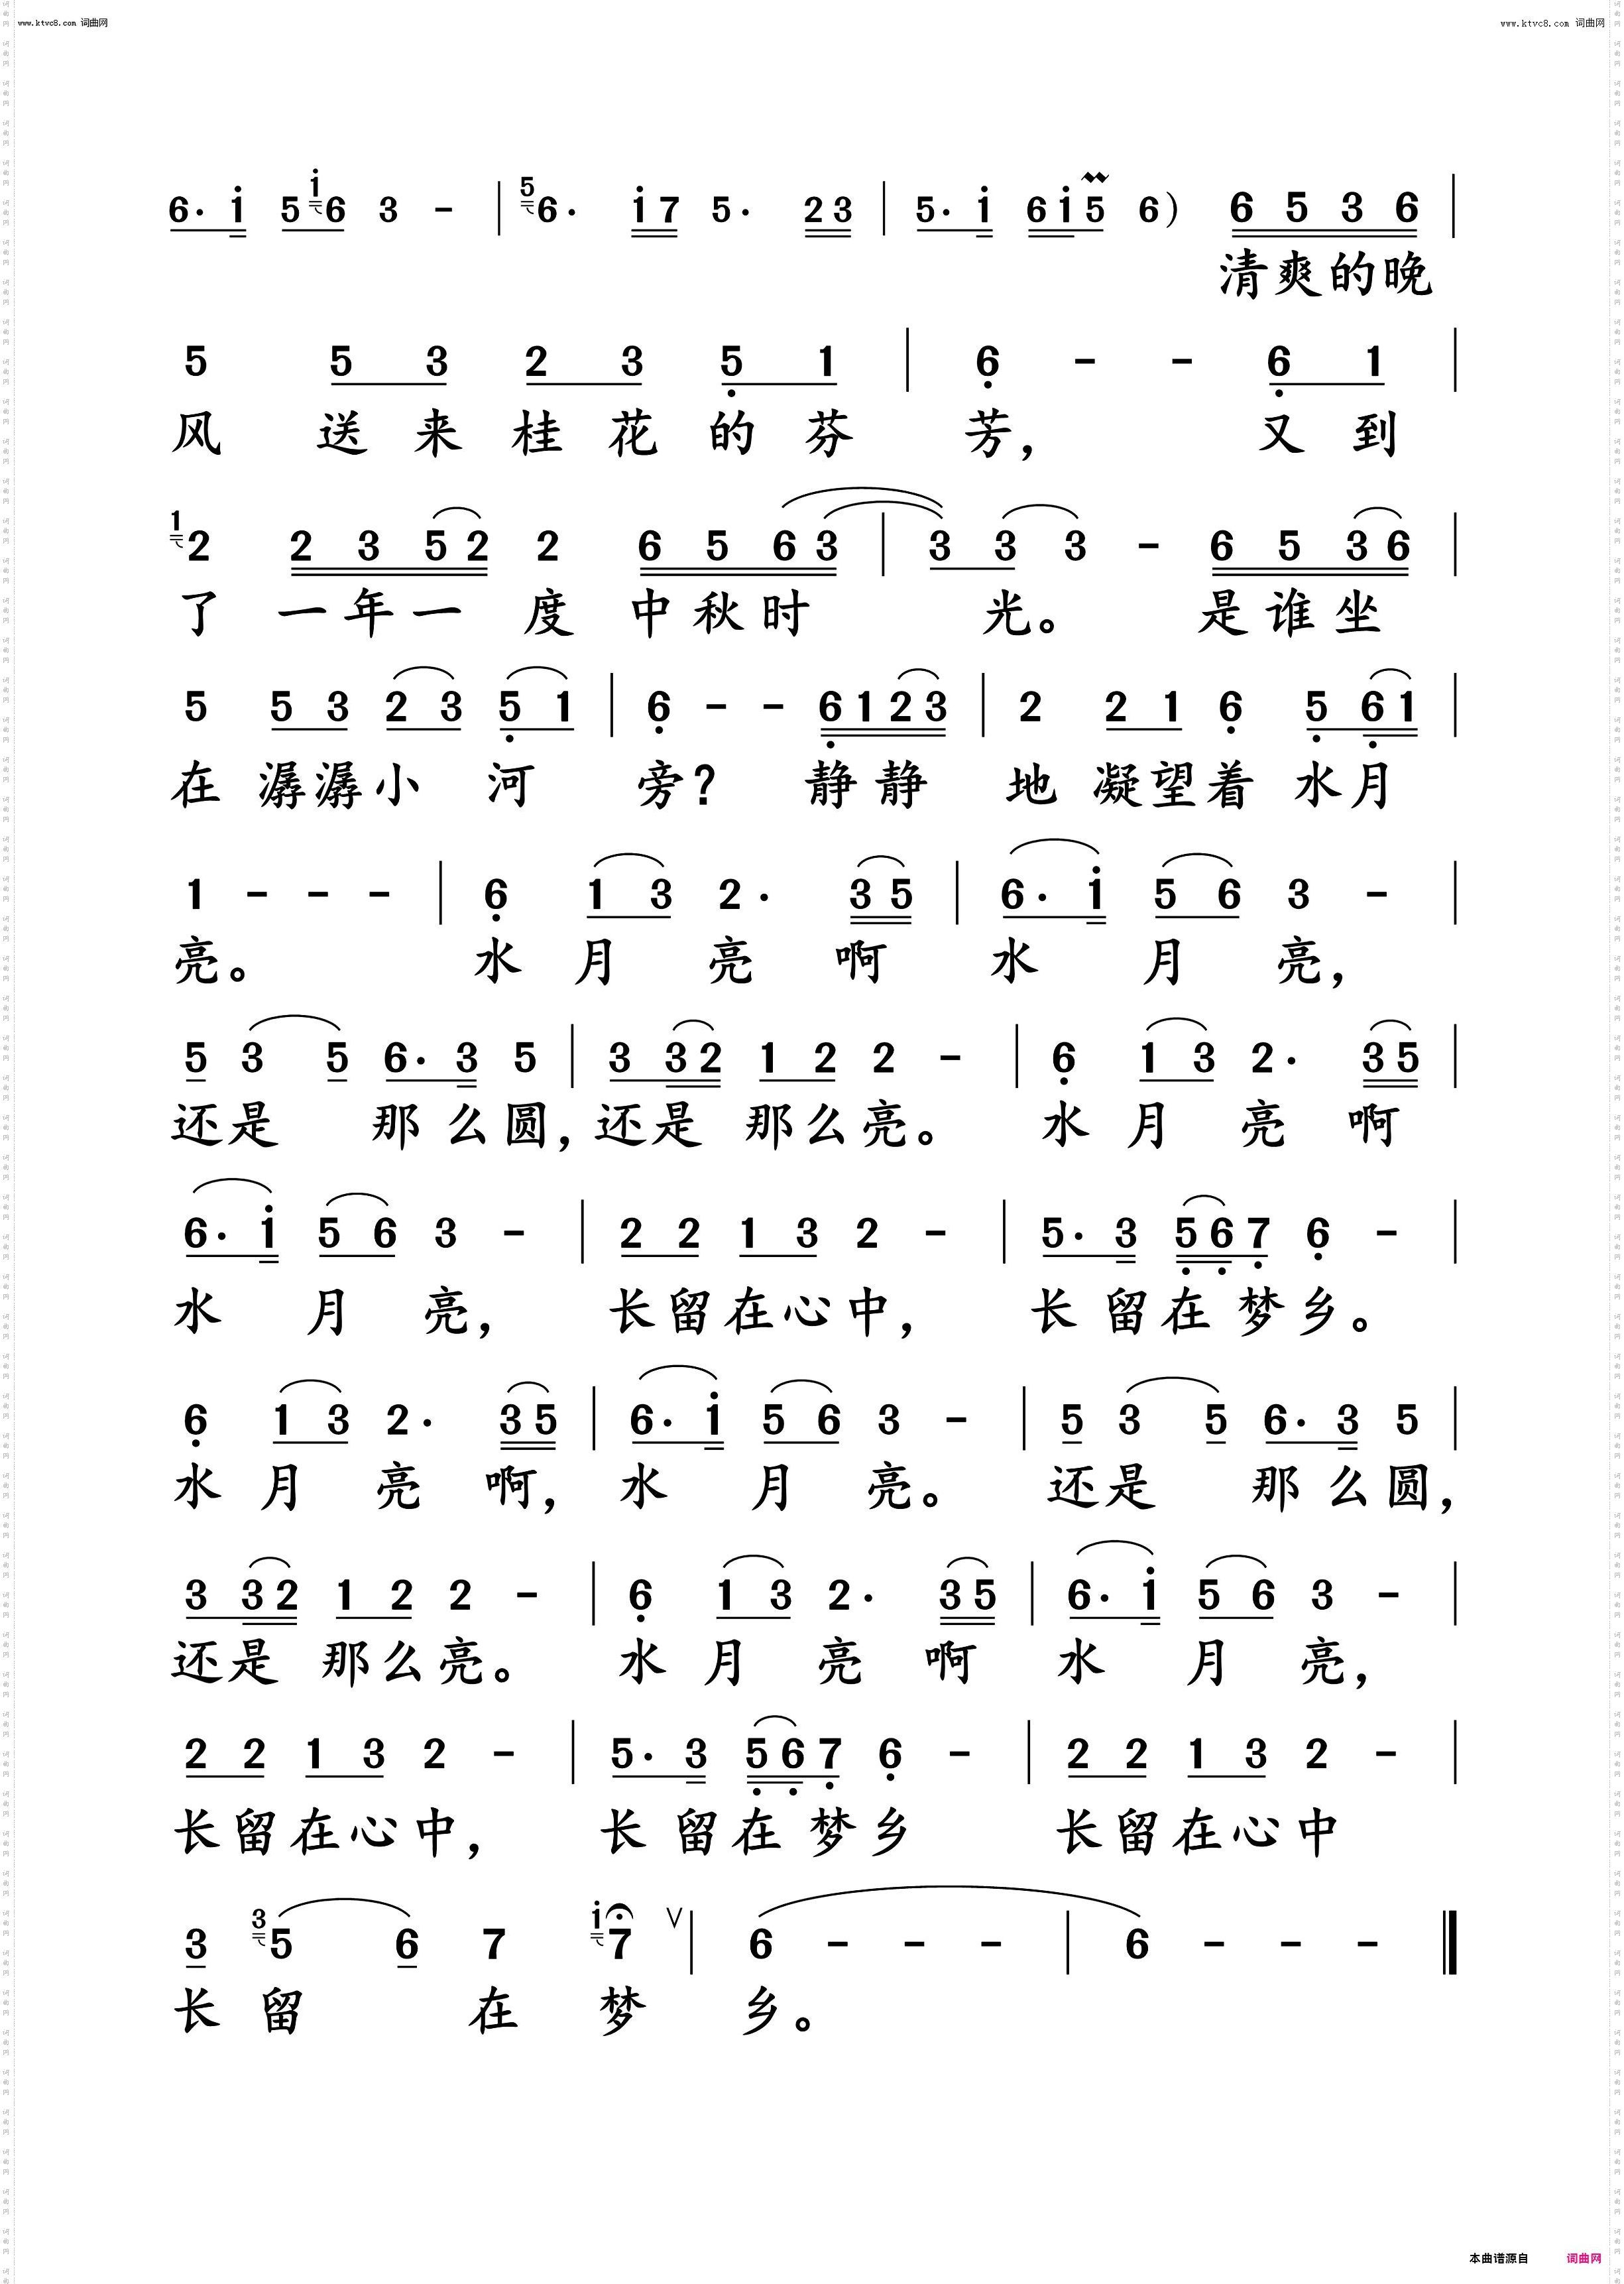 www.ktvc8.com 词曲网 www.ktvc8.com 词曲网
6· i 5 i 6 3 - | 5 6· i 7 5· 2 3 | 5· i 6 i 5 6 ) 6 5 3 6 |
清爽的晚
5 5 3 2 3 5 1 | 6 - - 6 1 |
风 送 来 桂 花 的 芬 芳， 又 到
1 2 2 3 5 2 2 6 5 6 3 | 3 3 3 - 6 5 3 6 |
了 一 年 一 度 中 秋 时 光。 是 谁 坐
5 5 3 2 3 5 1 | 6 - - 6 1 2 3 | 2 2 1 6 5 6 1 |
在 潺潺 小 河 旁？ 静 静 地 凝望着 水月
1 - - - | 6 1 3 2· 3 5 | 6· i 5 6 3 - |
亮。 水 月 亮 啊 水 月 亮，
5 3 5 6· 3 5 | 3 3 2 1 2 2 - | 6 1 3 2· 3 5 |
还是 那 么 圆， 还是 那么亮。 水 月 亮 啊
6· i 5 6 3 - | 2 2 1 3 2 - | 5· 3 5 6 7 6 - |
水 月 亮， 长留在心中， 长 留在 梦乡。
6 1 3 2· 3 5 | 6· i 5 6 3 - | 5 3 5 6· 3 5
水 月 亮 啊， 水 月 亮。 还是 那 么圆，
3 3 2 1 2 2 - | 6 1 3 2· 3 5 | 6· i 5 6 3 - |
还是 那么亮。 水 月 亮 啊 水 月 亮，
2 2 1 3 2 - | 5· 3 5 6 7 6 - | 2 2 1 3 2 - |
长留在心中， 长 留在 梦乡 长留在心中
3 3 5 6 7 i 7 V | 6 - - - | 6 - - - ‖
长 留 在 梦 乡。
本曲谱源自 词曲网